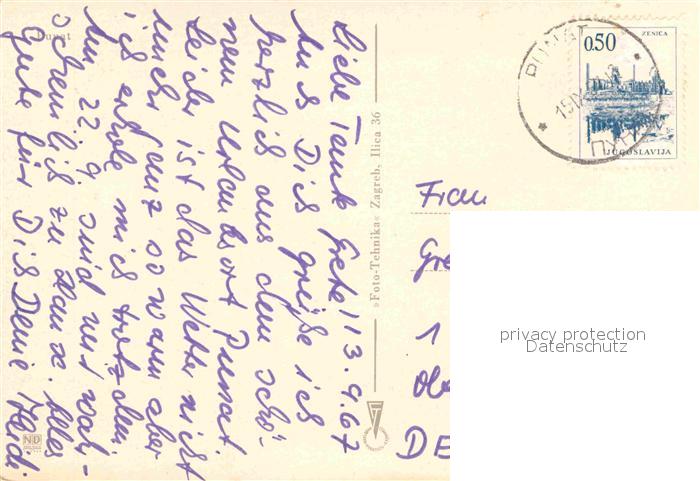 Punat
Liebe Tante Grete! 13.9.67
Auch Dich grüße ich
herzlich aus dem schö-
nen Urlaubsort Punat
Leider ist das Wetter nicht
mehr ganz so warm aber
ich erhole mich trotzdem
Am 22.9. sind wir wahr-
scheinlich zu Haus. Alles
Gute für Dich Deine Heidi
»Foto-Tehnika« Zagreb, Ilica 36
ND
PUNAT
ПУНАТ
0.50
ZENICA
JUGOSLAVIJA
Frau
Gre
1
Obe
DE
privacy protection
Datenschutz